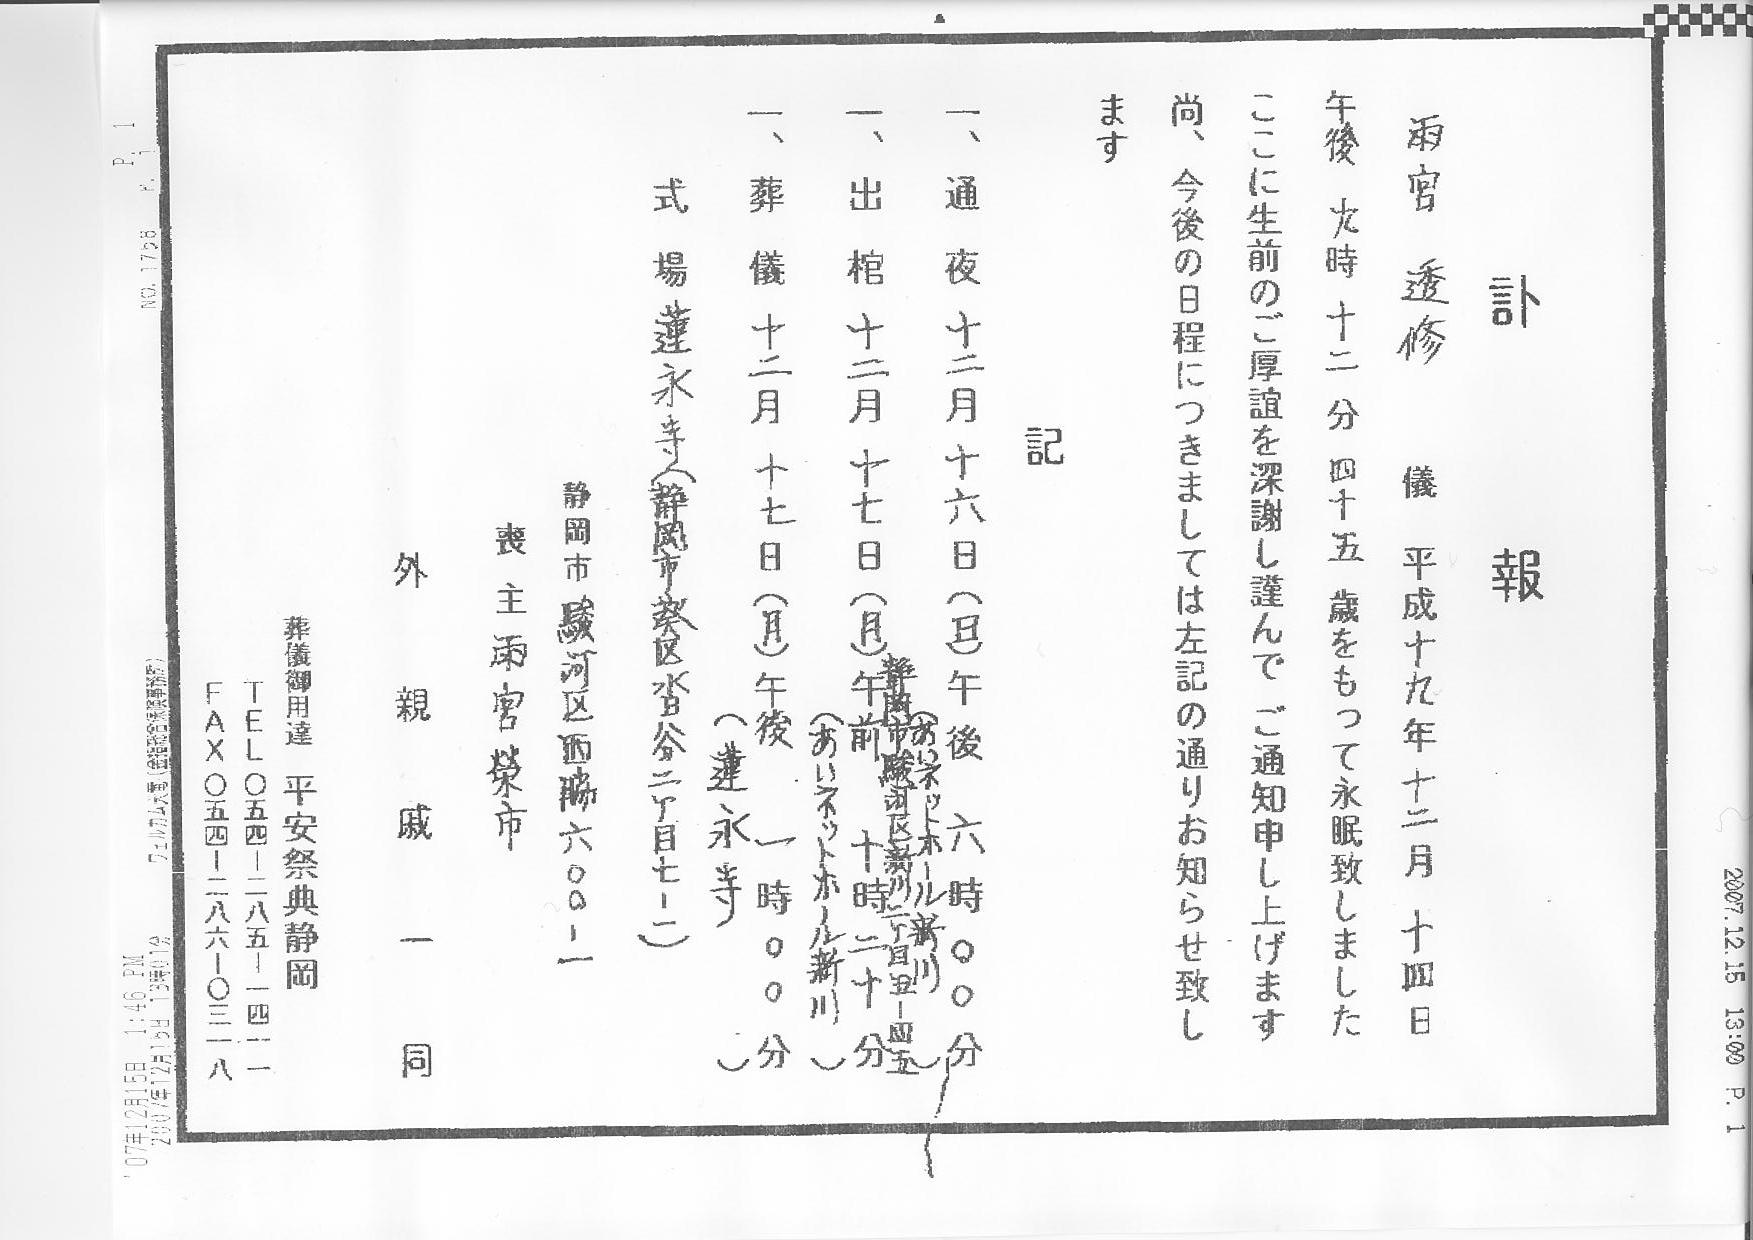 訃報
雨宮 透修 儀 平成十九年十二月 十四日
午後 九時 十二 分 四十五 歳をもって永眠致しました
ここに生前のご厚誼を深謝し謹んで ご通知申し上げます
尚、今後の日程につきましては左記の通りお知らせ致し
ます
記
一、通夜 十二月 十六日(日)午後 六時 〇〇分
(あいネットホール新川)
静岡市駿河区新川二丁目五ー四五
一、出棺 十二月 十七日(月)午前 十時 二十分
(あいネットホール新川)
一、葬儀 十二月 十七日(月)午後 一時 〇〇分
(蓮永寺)
式場 蓮永寺(静岡市葵区沓谷二丁目七ー一)
静岡市 駿河区西脇六〇〇ー一
喪主 雨宮 榮市
外 親戚一同
葬儀御用達 平安祭典静岡
TEL〇五四ー二八五ー一四一一
FAX〇五四ー二八六ー〇三一八
2007.12.15 13:00 P. 1
'07年12月15日 1:46 PM
2007年12月15日 13時01分
NO. 1768 P. 1
P. 1